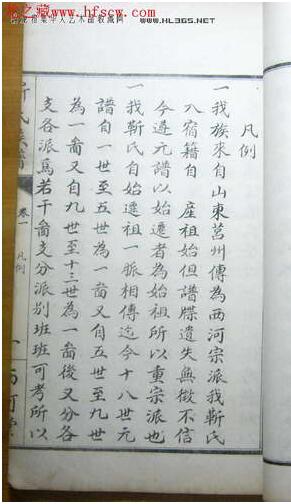 凡例
一我族來自山東莒州傳為西河宗派我靳氏
入宿籍自 產祖始但譜牒遺失無徵不信
今遵元譜以始遷者為始祖所以重宗派也
一我靳氏自始遷祖一脈相傳迄今十八世元
譜自一世至五世為一啚又自五世至九世
為一啚又自九世至十三世為一啚後又分各
支各派爲若干啚支分派別班班可考所以
靳氏族譜
卷一
凡例
一
西河堂
www.hfscw.com
WWW.HL365.NET